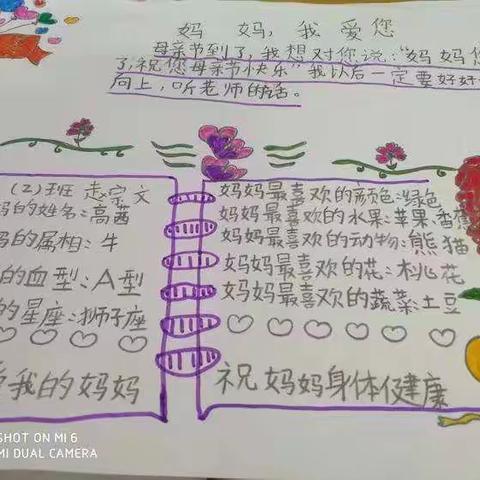 妈妈,我爱您
母亲节到了,我想对你说:“妈妈您
了,祝您母亲节快乐”我以后一定要好好
向上,听老师的话。
(2)班 赵宗文
妈的姓名:高茜
妈的属相:牛
的血型:A型
的星座:狮子座
爱我的妈妈
妈妈最喜欢的颜色:绿色
妈妈最喜欢的水果:苹果香蕉
妈妈最喜欢的动物:熊猫
妈妈最喜欢的花:桃花
妈妈最喜欢的蔬菜:土豆
祝妈妈身体健康
SHOT ON MI 6
MI DUAL CAMERA